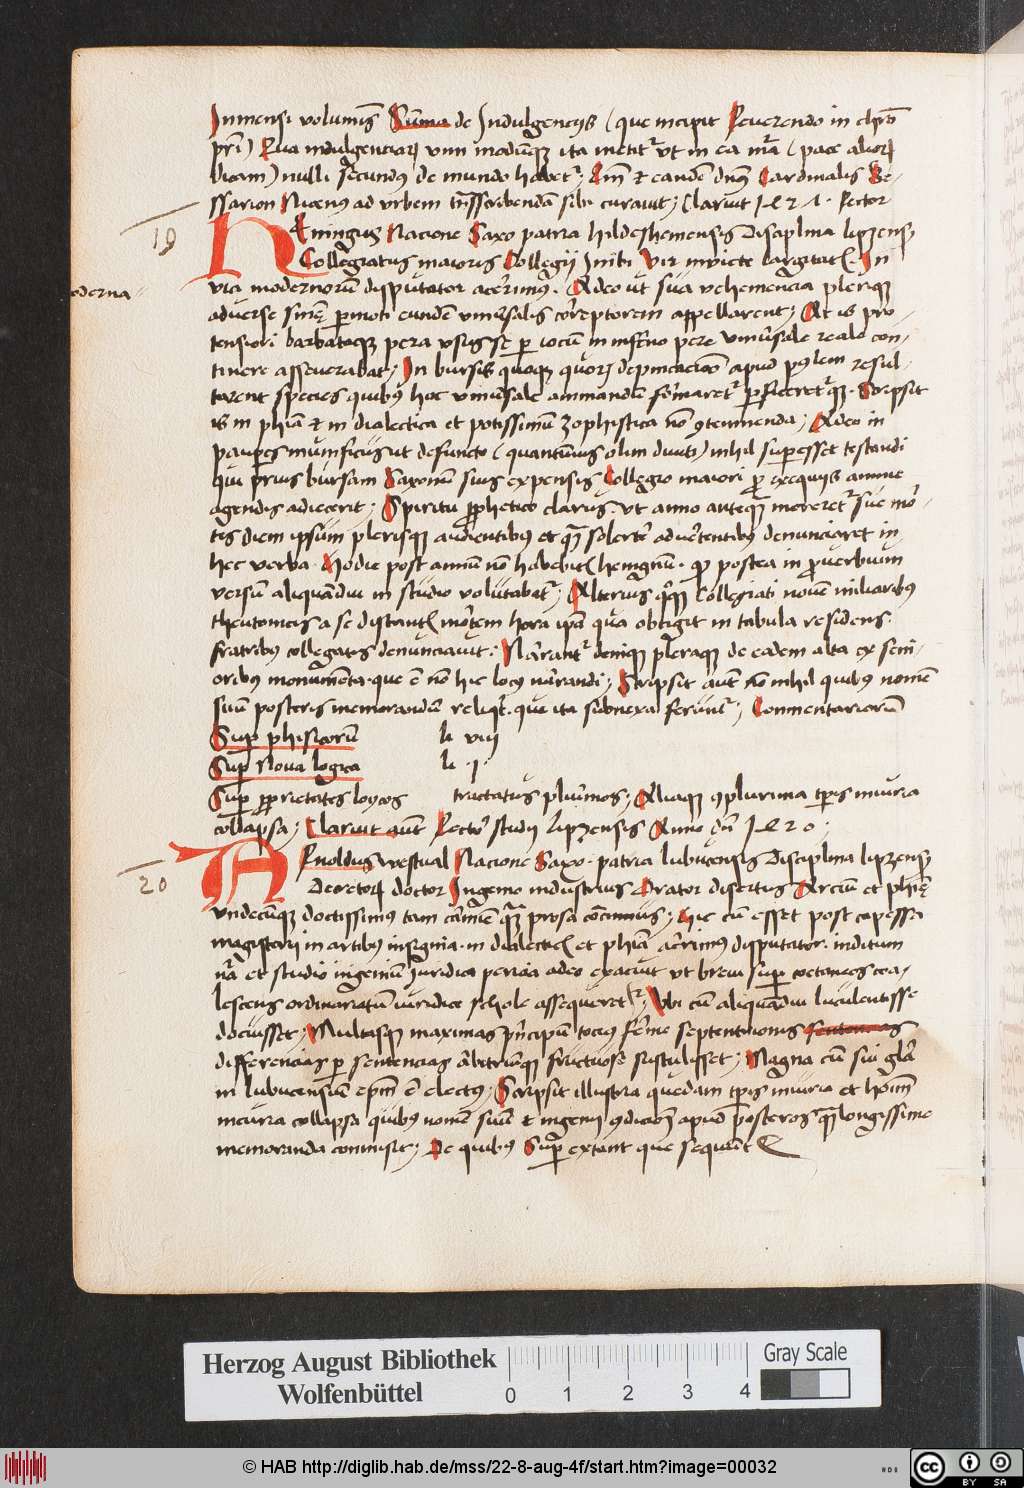 Inmensi volumis Suma de Indulgencijs (que incipit Reverendo in chro
pri) Qua indulgenciar vim modumq ita metit ut in ea mra (pace alior
dicam) nulli secundus de mundo habet; Cum et eandem dnus Cardinalis Be-
ssarion Nicenus ad urbem transscribendam sibi curavit; Claruit 1421. Rector
19
Henningus Nacione Saxo patria hildeshemensis Disciplina lipzensis
Collegiatus maioris Collegij Initi Vir invicte largitatis In
oderna
via modernorum disputator acerrimus. Adeo ut sua vehemencia plerique
adverse permoti eundem universalis correptorem appellarent; At is pro-
tensiori barbatoque pera usus se per iocum in inferno pere universale reale con-
tinere asseverabat; In bursis quoque apud resul-
tarent species quibus hoc universale ammandum formaret perficeretque. Scripsit
is in phia et in dialectica et potissimum zophistica non contemnenda; Adeo in
pauperes munificus ut defuncto (quantumvis olim diviti) nihil superesset testandi
qui prius bursam Saxonum suis expensis Collegio maiori pro exequijs annue
agendis adiecerit; Spiritu prophetico clarus. ut anno antequam moreretur sue mor-
tis diem ipsum plerisque audientibus et quam solerter advertentibus denunciaret in
hec verba. Hodie post annum non habebitis hemgnum. quod postea in proverbium
versum aliquandiu in studio volutabatur; Alterius quoque Collegiati novem miliaribus
theutonicis a se distantis mortem hora ipsa qua obtigit in tabula residens.
fratribus collegatis denunciavit. Narrantur denique pleraque de eadem alta ex seni-
oribus monumenta. que est non hic locus narrandi; Scripsit autem non nihil quibus nomen
suum posteris memorandum reliquit. que ita subnexa feruntur; Commentariorum
Super phisicorum li viij
Super Nova logica li. j.
Super proprietates loycos tractatus plurimos; Aliaque complurima temporis iniuria
collapsa; Claruit autem Rector studij lipzensis Anno domini 1420;
20
Arnoldus westual Nacione Saxo. patria lubucensis Disciplina lipzensis
Decretorum doctor Ingenio industrius Orator disertus Arcium et phie
undecumque doctissimus tam carmine quam prosa continuus; hic cum esset post capessa
magisterij in artibus insignia. in dialecticis et phia acerrimus disputator. inditum
natura et studio ingenium Juridica pericia adeo exacuit ut brevi super coetaneos coa-
lescens ordinariatum iuridice schole assequeretur; Ubi cum aliquandiu luculentisse
docuisset; Multasque maximas principum tocius ferme septentrionis
differencias per sentencias arbitriumque fructuose sustulisset; Magna cum sui gloria
in lubucensium episcopum est electus; Scripsit illustria quedam temporis iniuria et hominum
incuria collapsa quibus nomen suum et ingenij condicionem apud posteros quam longissime
memoranda commisit; De quibus Super extant que sequuntur
Herzog August Bibliothek
Wolfenbüttel
0 1 2 3 4
Gray Scale
© HAB http://diglib.hab.de/mss/22-8-aug-4f/start.htm?image=00032
cc BY SA